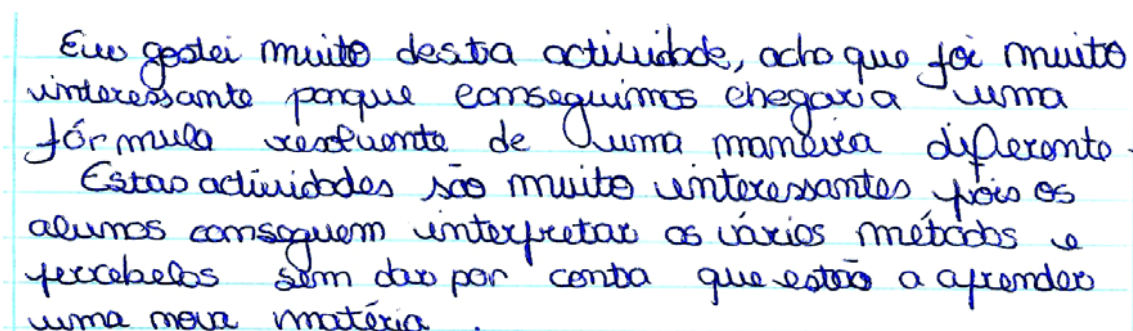 Eu gostei muito desta actividade, acho que foi muito
interessante porque conseguimos chegar a uma
fórmula resolvente de uma maneira diferente.
Estas actividades são muito interessantes pois os
alunos conseguem interpretar os vários métodos e
percebelos sem dar por conta que estão a aprender
uma nova matéria.